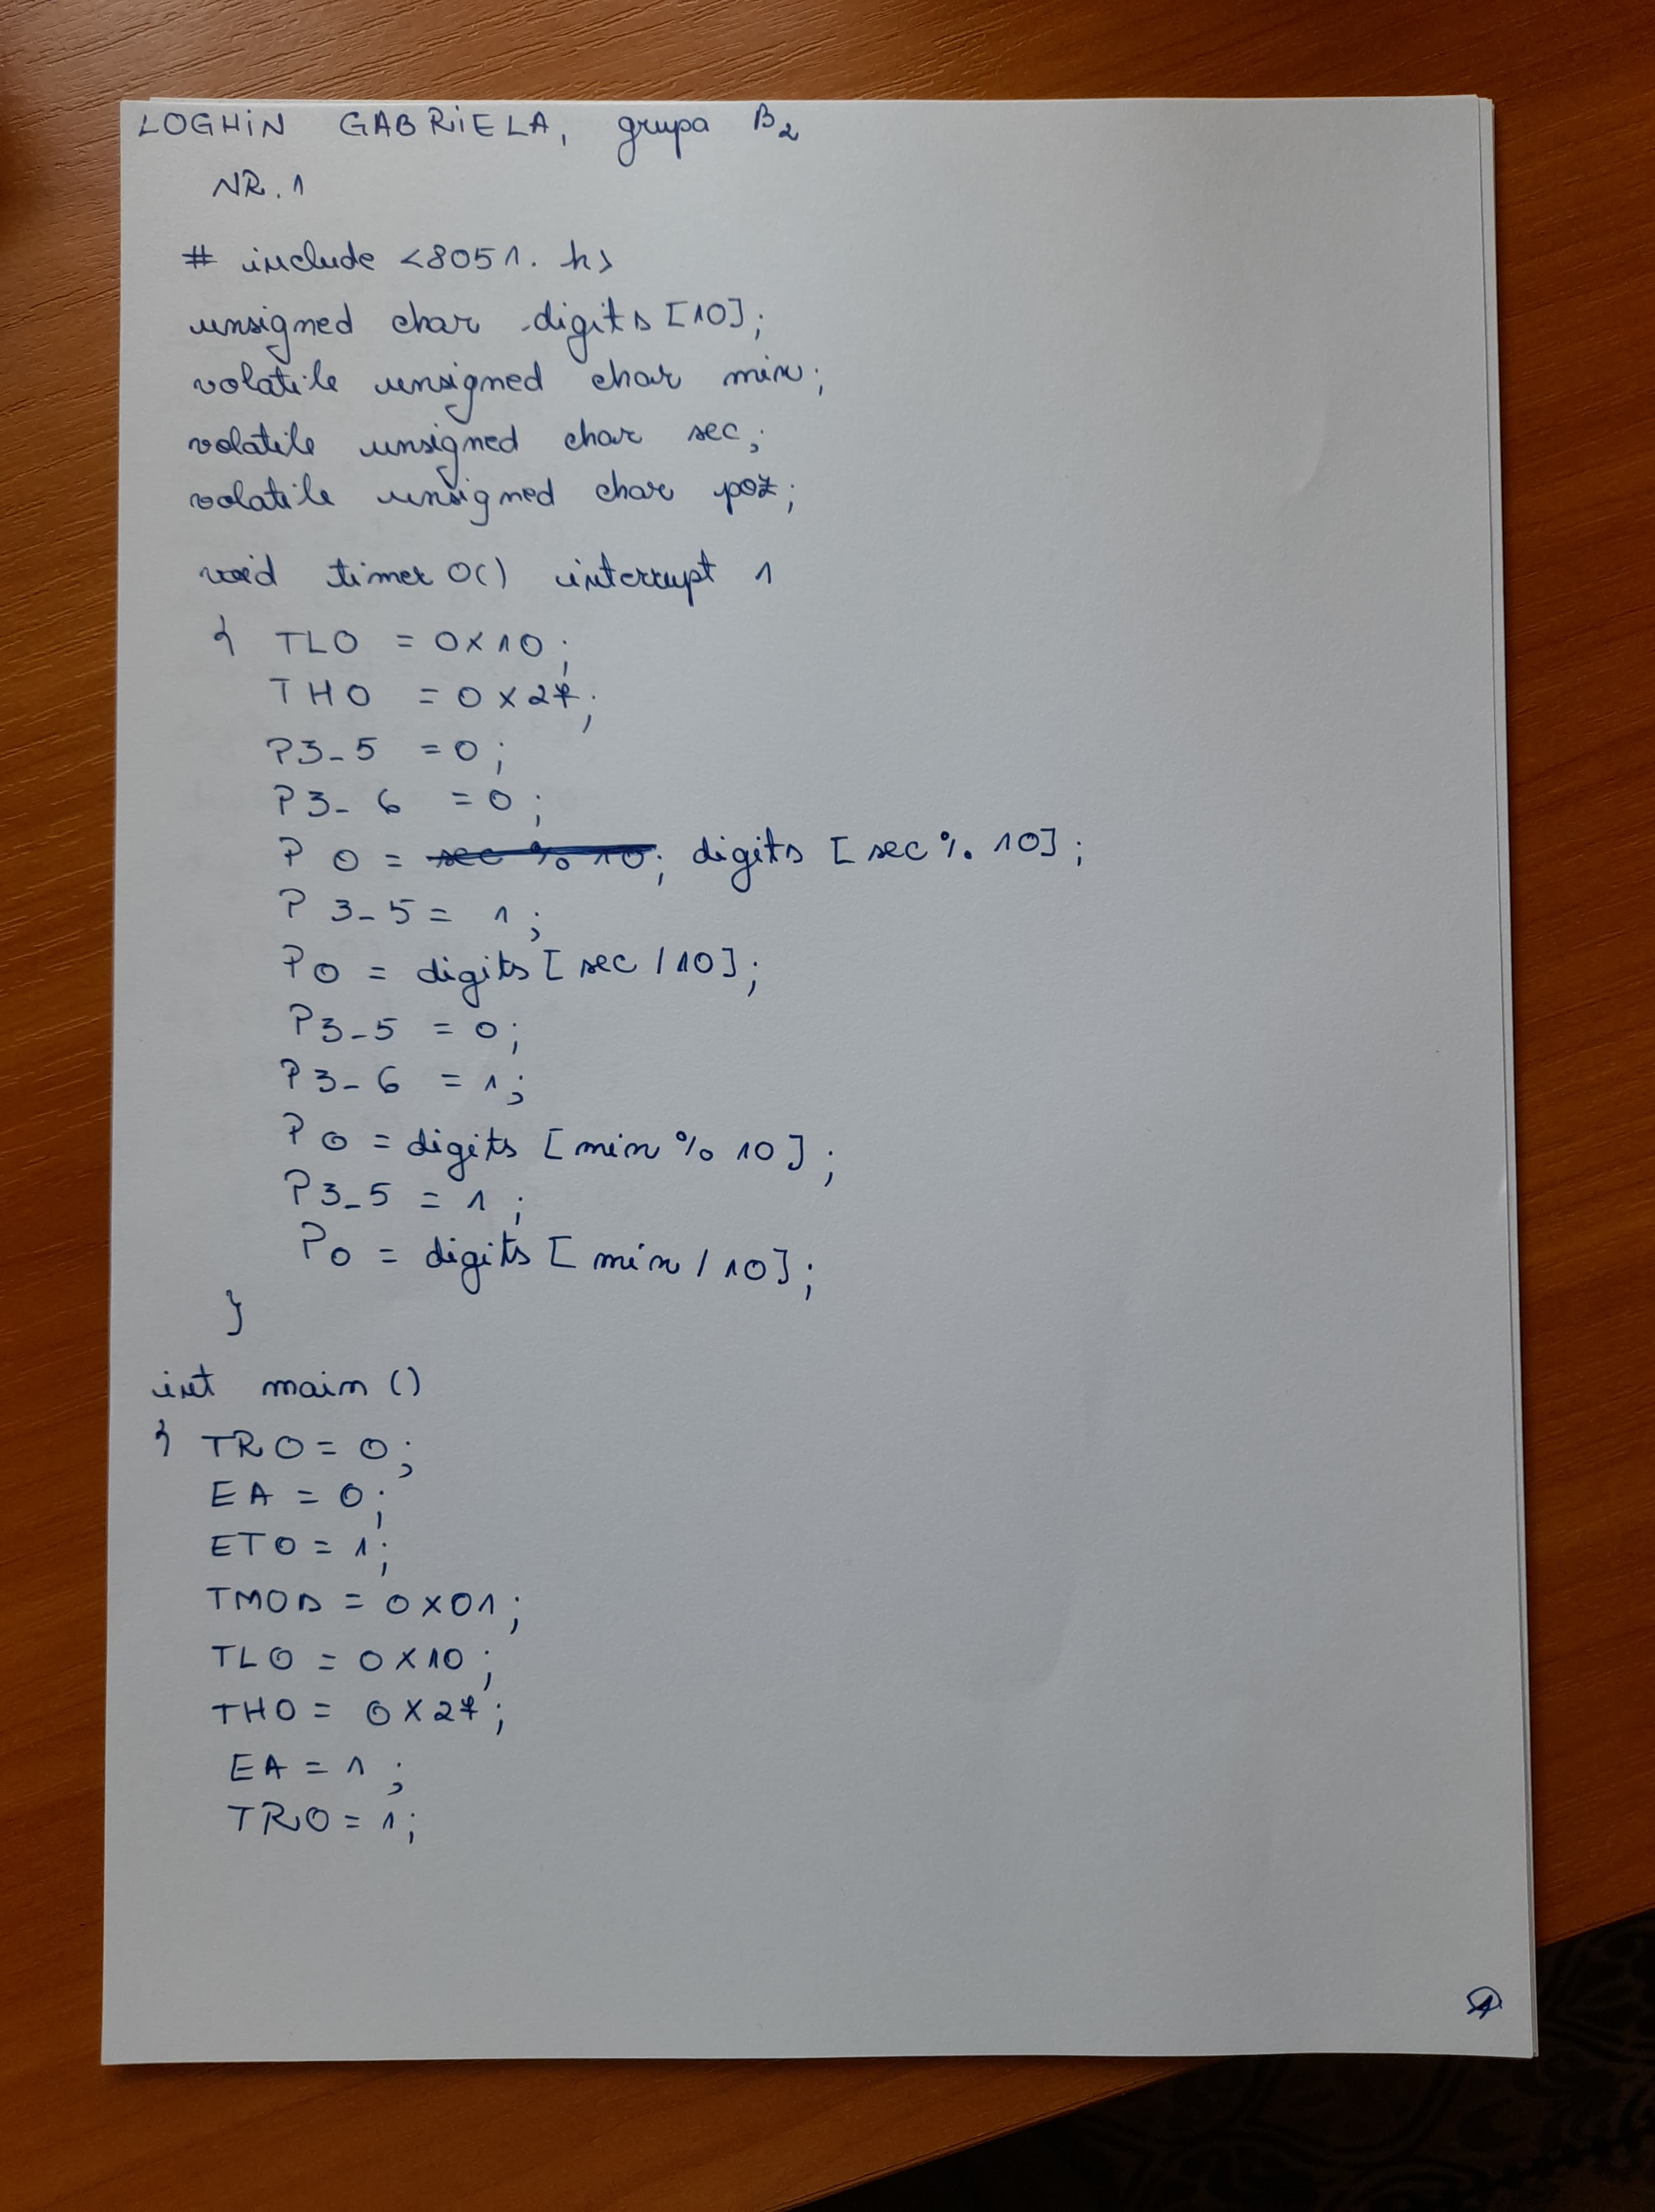 LOGHIN GABRIELA, grupa B2
NR. 1
# include <8051.h>
unsigned char digits [10];
volatile unsigned char min;
volatile unsigned char sec;
volatile unsigned char poz;
void timer0() interrupt 1
{ TL0 = 0x10;
TH0 = 0x27;
P3_5 = 0;
P3_6 = 0;
P0 = sec % 10; digits [sec % 10];
P3_5 = 1;
P0 = digits [sec / 10];
P3_5 = 0;
P3_6 = 1;
P0 = digits [min % 10];
P3_5 = 1;
P0 = digits [min / 10];
}
int main ()
{ TR0 = 0;
EA = 0;
ET0 = 1;
TMOD = 0x01;
TL0 = 0x10;
TH0 = 0x27;
EA = 1;
TR0 = 1;
1